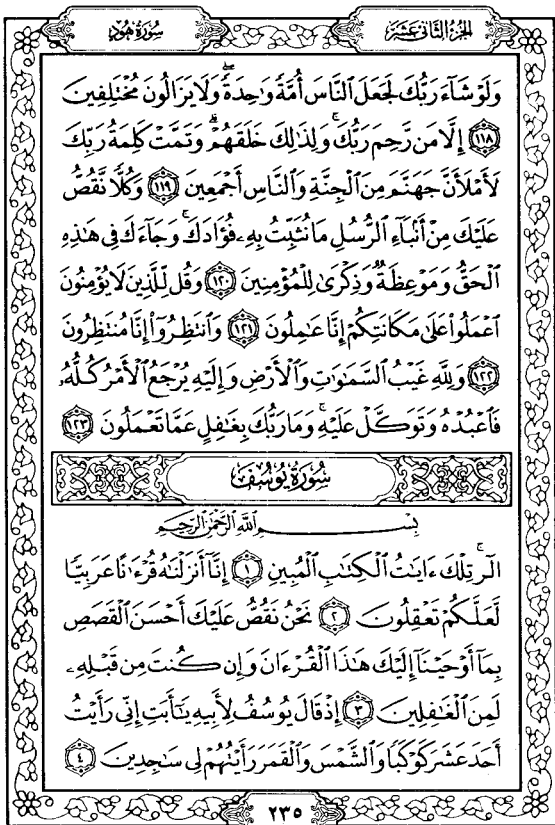 الجزء الثاني عشر
سورة هود
وَلَوْ شَآءَ رَبُّكَ لَجَعَلَ ٱلنَّاسَ أُمَّةً وَٰحِدَةً ۖ وَلَا يَزَالُونَ مُخْتَلِفِينَ
﴿١١٨﴾ إِلَّا مَن رَّحِمَ رَبُّكَ ۚ وَلِذَٰلِكَ خَلَقَهُمْ ۗ وَتَمَّتْ كَلِمَةُ رَبِّكَ
لَأَمْلَأَنَّ جَهَنَّمَ مِنَ ٱلْجِنَّةِ وَٱلنَّاسِ أَجْمَعِينَ ﴿١١٩﴾ وَكُلًّا نَّقُصُّ
عَلَيْكَ مِنْ أَنۢبَآءِ ٱلرُّسُلِ مَا نُثَبِّتُ بِهِۦ فُؤَادَكَ ۚ وَجَآءَكَ فِى هَٰذِهِ
ٱلْحَقُّ وَمَوْعِظَةٌ وَذِكْرَىٰ لِلْمُؤْمِنِينَ ﴿١٢٠﴾ وَقُل لِّلَّذِينَ لَا يُؤْمِنُونَ
ٱعْمَلُوا۟ عَلَىٰ مَكَانَتِكُمْ إِنَّا عَٰمِلُونَ ﴿١٢١﴾ وَٱنتَظِرُوٓا۟ إِنَّا مُنتَظِرُونَ
﴿١٢٢﴾ وَلِلَّهِ غَيْبُ ٱلسَّمَٰوَٰتِ وَٱلْأَرْضِ وَإِلَيْهِ يُرْجَعُ ٱلْأَمْرُ كُلُّهُۥ
فَٱعْبُدْهُ وَتَوَكَّلْ عَلَيْهِ ۚ وَمَا رَبُّكَ بِغَٰفِلٍ عَمَّا تَعْمَلُونَ ﴿١٢٣﴾
سورة يوسف
بِسْمِ ٱللَّهِ ٱلرَّحْمَٰنِ ٱلرَّحِيمِ
الٓر ۚ تِلْكَ ءَايَٰتُ ٱلْكِتَٰبِ ٱلْمُبِينِ ﴿١﴾ إِنَّآ أَنزَلْنَٰهُ قُرْءَٰنًا عَرَبِيًّا
لَّعَلَّكُمْ تَعْقِلُونَ ﴿٢﴾ نَحْنُ نَقُصُّ عَلَيْكَ أَحْسَنَ ٱلْقَصَصِ
بِمَآ أَوْحَيْنَآ إِلَيْكَ هَٰذَا ٱلْقُرْءَانَ وَإِن كُنتَ مِن قَبْلِهِۦ
لَمِنَ ٱلْغَٰفِلِينَ ﴿٣﴾ إِذْ قَالَ يُوسُفُ لِأَبِيهِ يَٰٓأَبَتِ إِنِّى رَأَيْتُ
أَحَدَ عَشَرَ كَوْكَبًا وَٱلشَّمْسَ وَٱلْقَمَرَ رَأَيْتُهُمْ لِى سَٰجِدِينَ ﴿٤﴾
٢٣٥